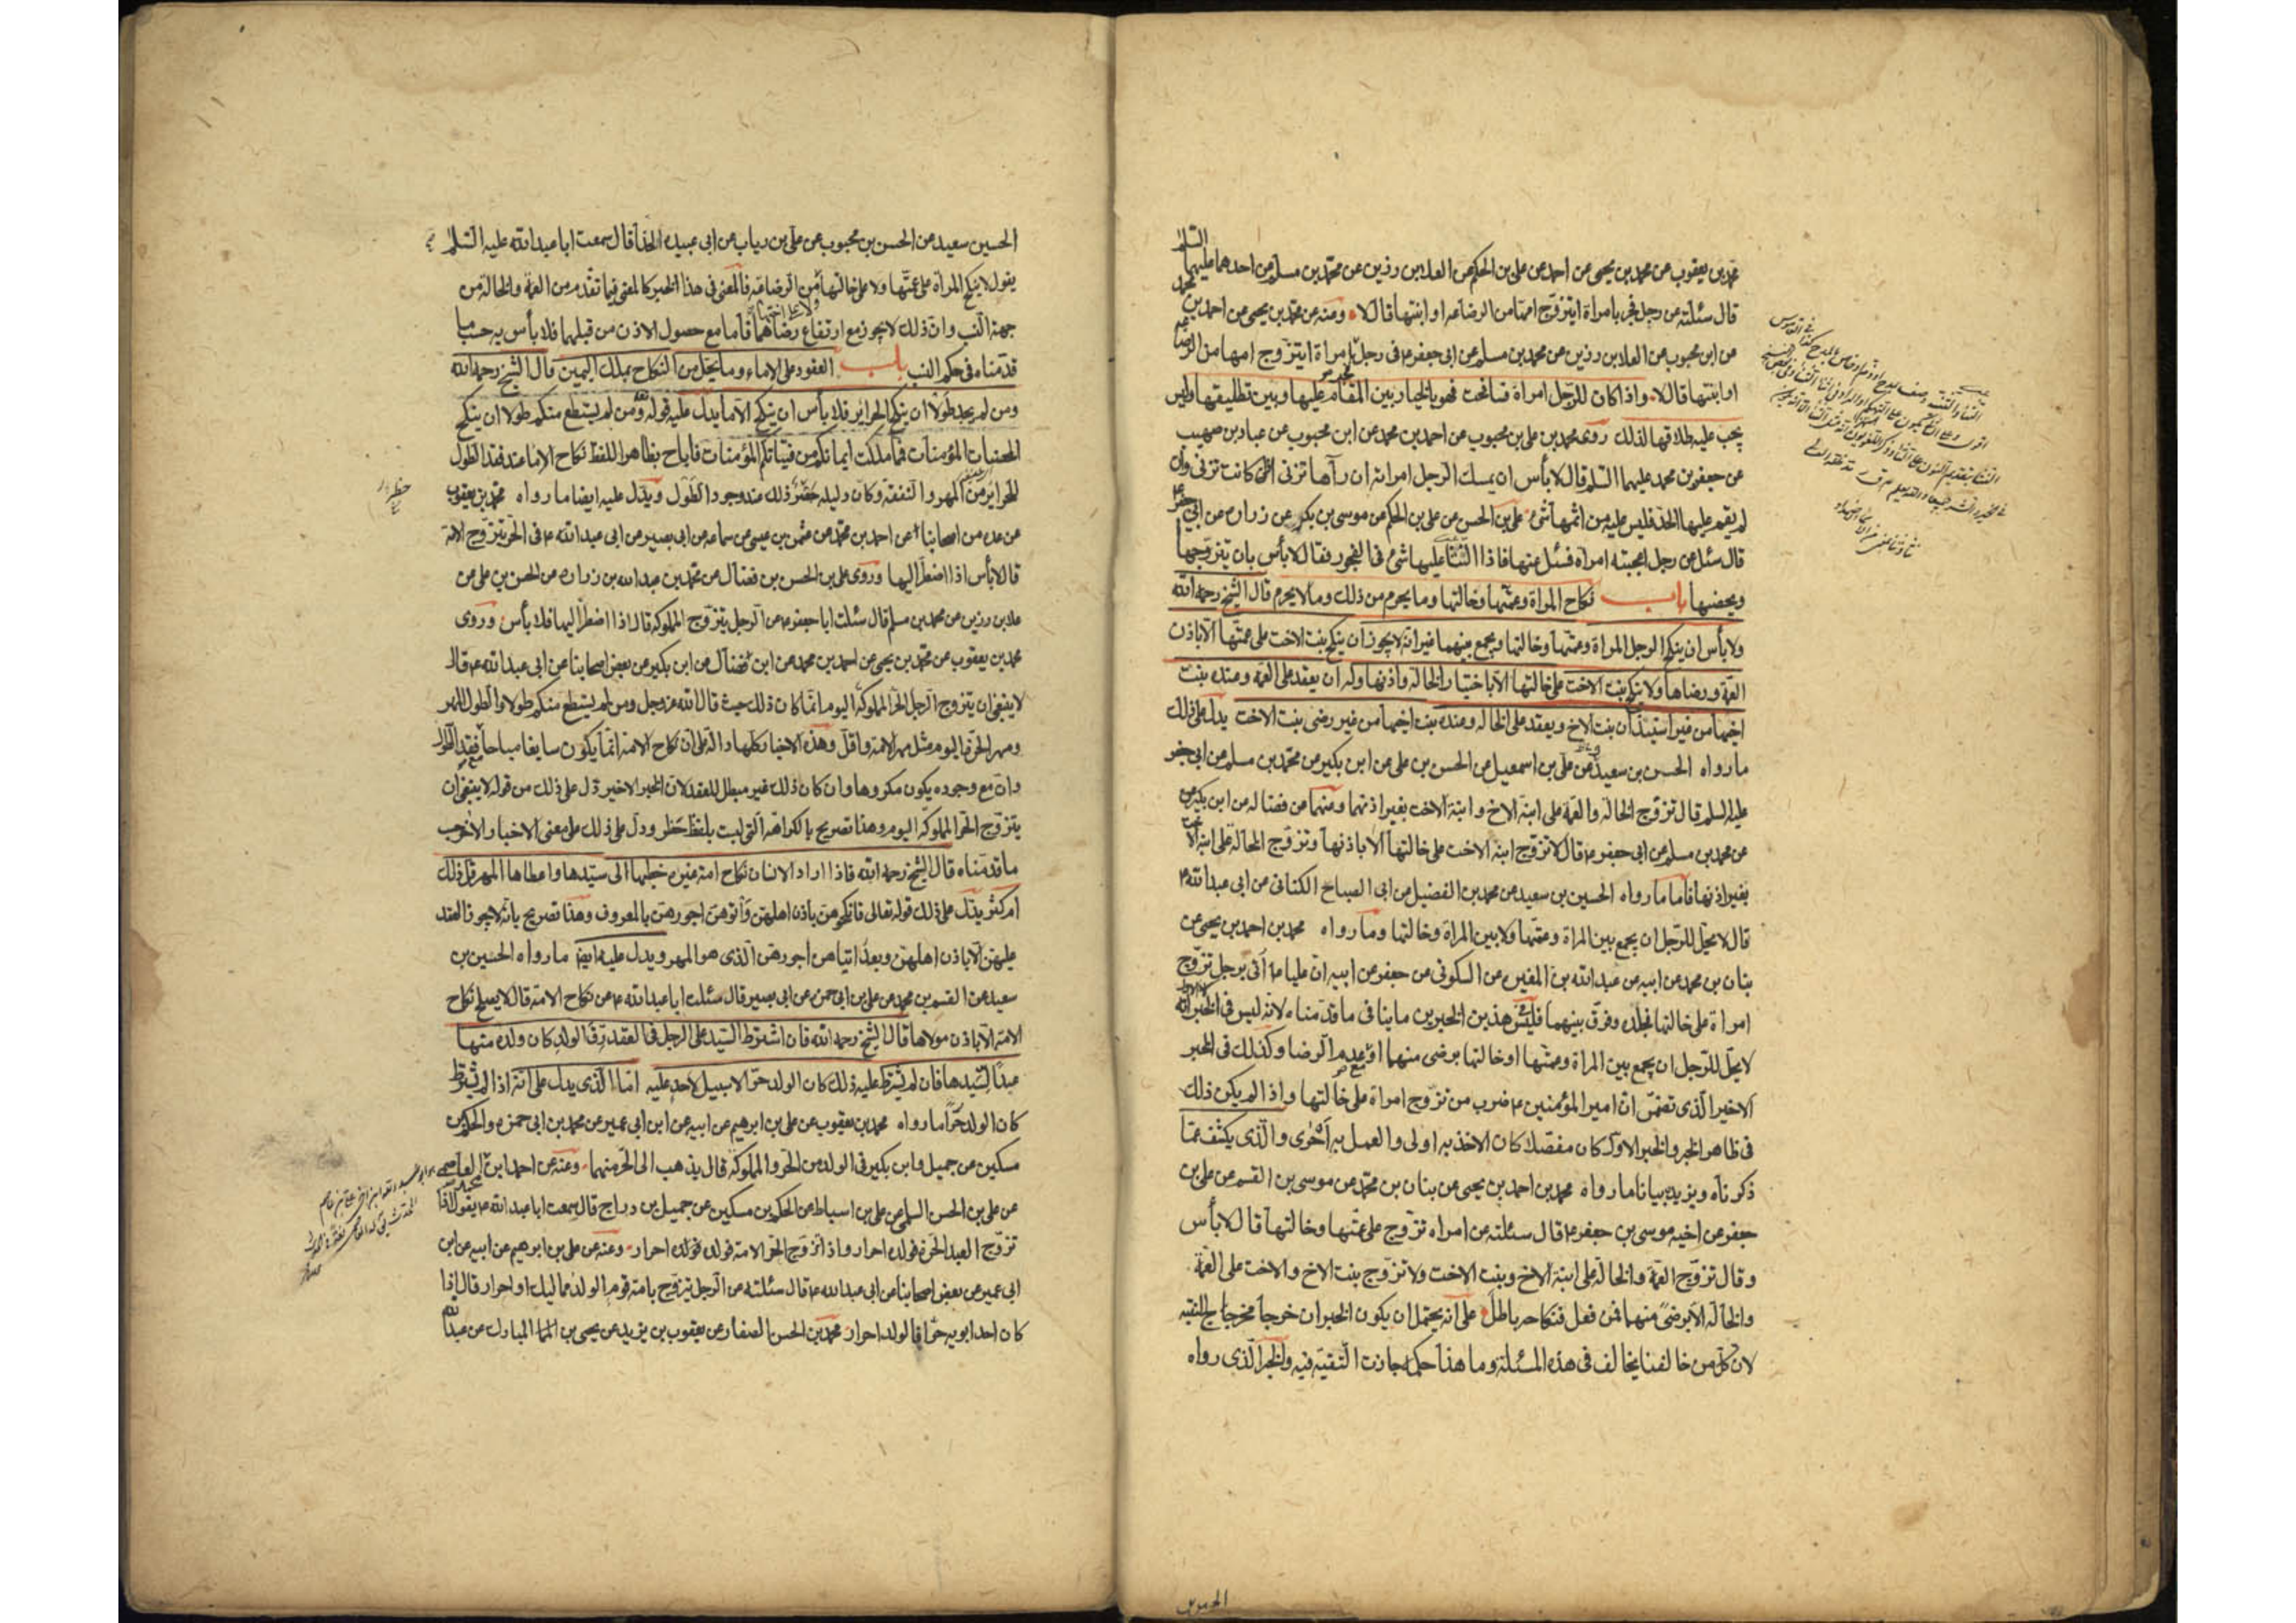 محمد بن يعقوب عن محمد بن يحيى عن احمد عن علي بن الحكم عن العلا بن رزين عن محمد بن مسلم عن احدهما عليهما السلم
قال سئلته عن رجل فجر بامراة ايتزوج امها من الرضاعه او ابنتها قال لا ومنه عن محمد بن يحيى عن احمد بن محمد
عن ابن محبوب عن العلا بن رزين عن محمد بن مسلم عن ابي جعفر ع في رجل فجر بامراة ايتزوج امها من الرضاعه
او ابنتها قال لا واذا كان للرجل امراة ففجرت فهو بالخيار بين المقام عليها وبين تطليقها وليس
يجب عليه طلاقها لذلك روى محمد بن علي بن محبوب عن احمد بن محمد عن ابن محبوب عن عباد بن صهيب
عن جعفر بن محمد عليهما السلم قال لا بأس ان يمسك الرجل امراته ان رآها تزني اذا كانت تزني وان
لم يقم عليها الحد فليس عليه من اثمها شئ علي بن الحسن عن علي بن الحكم عن موسى بن بكر عن زراره عن ابي جعفر ع
قال سئل عن رجل اعجبته امراه فسئل عنها فاذا الثنا عليها شئ في الفجور فقال لا بأس بان يتزوجها
ويحصنها باب نكاح المراة وعمتها وخالتها وما يحرم من ذلك وما لا يحرم قال الشيخ رحمه الله
ولا بأس ان ينكح الرجل المراة وعمتها وخالتها ويجمع بينهما غير انه لا يجوز ان ينكح بنت الاخ على عمتها الا باذن
العمة ورضاها ولا ينكح بنت الاخت على خالتها الا باختيار الخاله واذنها وله ان يعقد على العمة وعنده بنت
اخيها من غير استيذان بنت الاخ ويعقد على الخاله وعنده بنت اختها من غير رضى بنت الاخت يدل على ذلك
ما رواه الحسن بن سعيد عن علي بن اسمعيل عن الحسن بن علي عن ابن بكير عن محمد بن مسلم عن ابي جعفر
عليه السلم قال تزوج الخاله والعمة على ابنة الاخ وابنة الاخت بغير اذنهما ومنهما عن فضاله عن ابن بكير
عن محمد بن مسلم عن ابي جعفر ع قال لا تزوج ابنة الاخت على خالتها الا باذنها وتزوج الخاله على ابنة الاخت
بغير اذنها فاما ما رواه الحسين بن سعيد عن محمد بن الفضيل عن ابي الصباح الكناني عن ابي عبد الله ع
قال لا يحل للرجل ان يجمع بين المراة وعمتها ولا بين المراة وخالتها وما رواه محمد بن احمد بن يحيى عن
بنان بن محمد عن ابيه عن عبد الله بن المغيره عن السكوني عن جعفر عن ابيه ان عليا ع اتى برجل تزوج
امراة على خالتها فجلده وفرق بينهما فليس في هذين الخبرين ما ينافي ما قدمناه لانه ليس في الخبر الاول انه
لا يحل للرجل ان يجمع بين المراة وعمتها او خالتها برضى منهما او مع عدم الرضا وكذلك في الخبر
الاخير الذي تضمن ان امير المؤمنين ع ضرب من تزوج امراة على خالتها واذا لم يكن ذلك
في ظاهر الخبر والخبر الاول كان مفصلا كان الاخذ به اولى والعمل به احرى والذي يكشف عما
ذكرناه ويزيده بيانا ما رواه محمد بن احمد بن يحيى عن بنان بن محمد عن موسى بن القسم عن علي بن
جعفر عن اخيه موسى بن جعفر ع قال سئلته عن امراه تزوج على عمتها وخالتها قال لا بأس
وقال تزوج العمة والخاله على ابنة الاخ وبنت الاخت ولا تزوج بنت الاخ والاخت على العمة
والخاله الا برضى منهما فمن فعل فنكاحه باطل على انه يحتمل ان يكون الخبران خرجا مخرج التقيه
لان كل من خالفنا يخالف في هذه المسئلة وما هذا حكمه جازت التقية فيه والخبر الذي رواه
الحسين
الحسين سعيد عن الحسن بن محبوب عن علي بن رياب عن ابي عبيده الحذا قال سمعت ابا عبد الله عليه السلم
يقول لا ينكح المراة على عمتها ولا على خالتها ولا على اختها من الرضاعه فالمعنى في هذا الخبر كالمعنى فيما تقدم من العمة والخالة من
جهة النسب وان ذلك لا يجوز مع ارتفاع رضاهما فاما مع حصول الاذن من قبلهما فلا بأس به حسب ما
قدمناه في حكم النسب باب العقود على الاماء وما يحل من النكاح بملك اليمين قال الشيخ رحمه الله
ومن لم يجد طولا ان ينكح الحراير فلا بأس ان ينكح الاما يدل عليه قوله ومن لم يستطع منكم طولا ان ينكح
المحصنات المؤمنات فما ملكت ايمانكم من فتياتكم المؤمنات فاباح بظاهر اللفظ نكاح الاما عند فقد الطول
للحراير من المهر والنفقة وكان دليله حظر ذلك عند وجود الطول ويدل عليه ايضا ما رواه محمد بن يعقوب
عن عده من اصحابنا عن احمد بن محمد عن عثمن بن عيسى عن سماعه عن ابي بصير عن ابي عبد الله ع في الحر يتزوج الامة
قال لا بأس اذا اضطر اليها وروى علي بن الحسن بن فضال عن محمد بن عبد الله بن زراره عن الحسن بن علي عن
علا بن رزين عن محمد بن مسلم قال سئلت ابا جعفر ع عن الرجل يتزوج المملوكه قال اذا اضطر اليها فلا بأس وروى
محمد بن يعقوب عن محمد بن يحيى عن احمد بن محمد عن ابن فضال عن ابن بكير عن بعض اصحابنا عن ابي عبد الله ع قال
لا ينبغي ان يتزوج الرجل الحر المملوكه اليوم انما كان ذلك حيث قال الله عز وجل ومن لم يستطع منكم طولا والطول المهر
ومهر الحرة اليوم مثل مهر الامة واقل وهذه الاخبار كلها دالة على ان نكاح الامة انما يكون سايغا مباحا مع فقد الطول
وان مع وجوده يكون مكروها وان كان ذلك غير مبطل للعقد لان الخبر الاخير دل على ذلك من قوله لا ينبغي ان
يتزوج الحر المملوكه اليوم وهذا تصريح بالكراهه التي ليست بلفظ حظر ودل على ذلك على معنى الاخبار الاخر حسب
ما قدمناه قال الشيخ رحمه الله فاذا اراد الانسان نكاح امة غيره خطبها الى سيدها واعطاها المهر قل ذلك
ام كثر يدل على ذلك قوله تعالى فانكحوهن باذن اهلهن وآتوهن اجورهن بالمعروف وهذا تصريح بانه لا يجوز العقد
عليهن الا باذن اهلهن وبعد ايتائهن اجورهن الذي هو المهر ويدل عليه ايضا ما رواه الحسين بن
سعيد عن القسم بن محمد عن علي بن ابي حمزه عن ابي بصير قال سئلت ابا عبد الله ع عن نكاح الامة قال لا يصلح نكاح
الامة الا باذن مولاها قال الشيخ رحمه الله فان اشترط السيد على الرجل في العقد رق الولد كان ولده منها
عبدا لسيدها فان لم يشترط عليه ذلك كان الولد حرا لا سبيل لاحد عليه اما الذي يدل على انه اذا لم يشترط
كان الولد حرا ما رواه محمد بن يعقوب عن علي بن ابرهيم عن ابيه عن ابن ابي عمير عن محمد بن ابي حمزه والحكم بن
مسكين عن جميل وابن بكير في الولد من الحر والمملوكه قال يذهب الى الحر منهما وعنه عن احمد ابن العاصمي
عن علي بن الحسن السلمي عن علي بن اسباط عن الحكم بن مسكين عن جميل بن دراج قال سمعت ابا عبد الله ع يقول اذا
تزوج العبد الحرة فولده احرار واذا تزوج الحر الامة فولده احرار وعنه عن علي بن ابرهيم عن ابيه عن ابن
ابي عمير عن بعض اصحابنا عن ابي عبد الله ع قال سئلته عن الرجل يتزوج بامة قوم الولد مماليك او احرار قال اذا
كان احد ابويه حرا فالولد احرار محمد بن الحسن الصفار عن يعقوب بن يزيد عن يحيى بن المبارك عن عبد الله